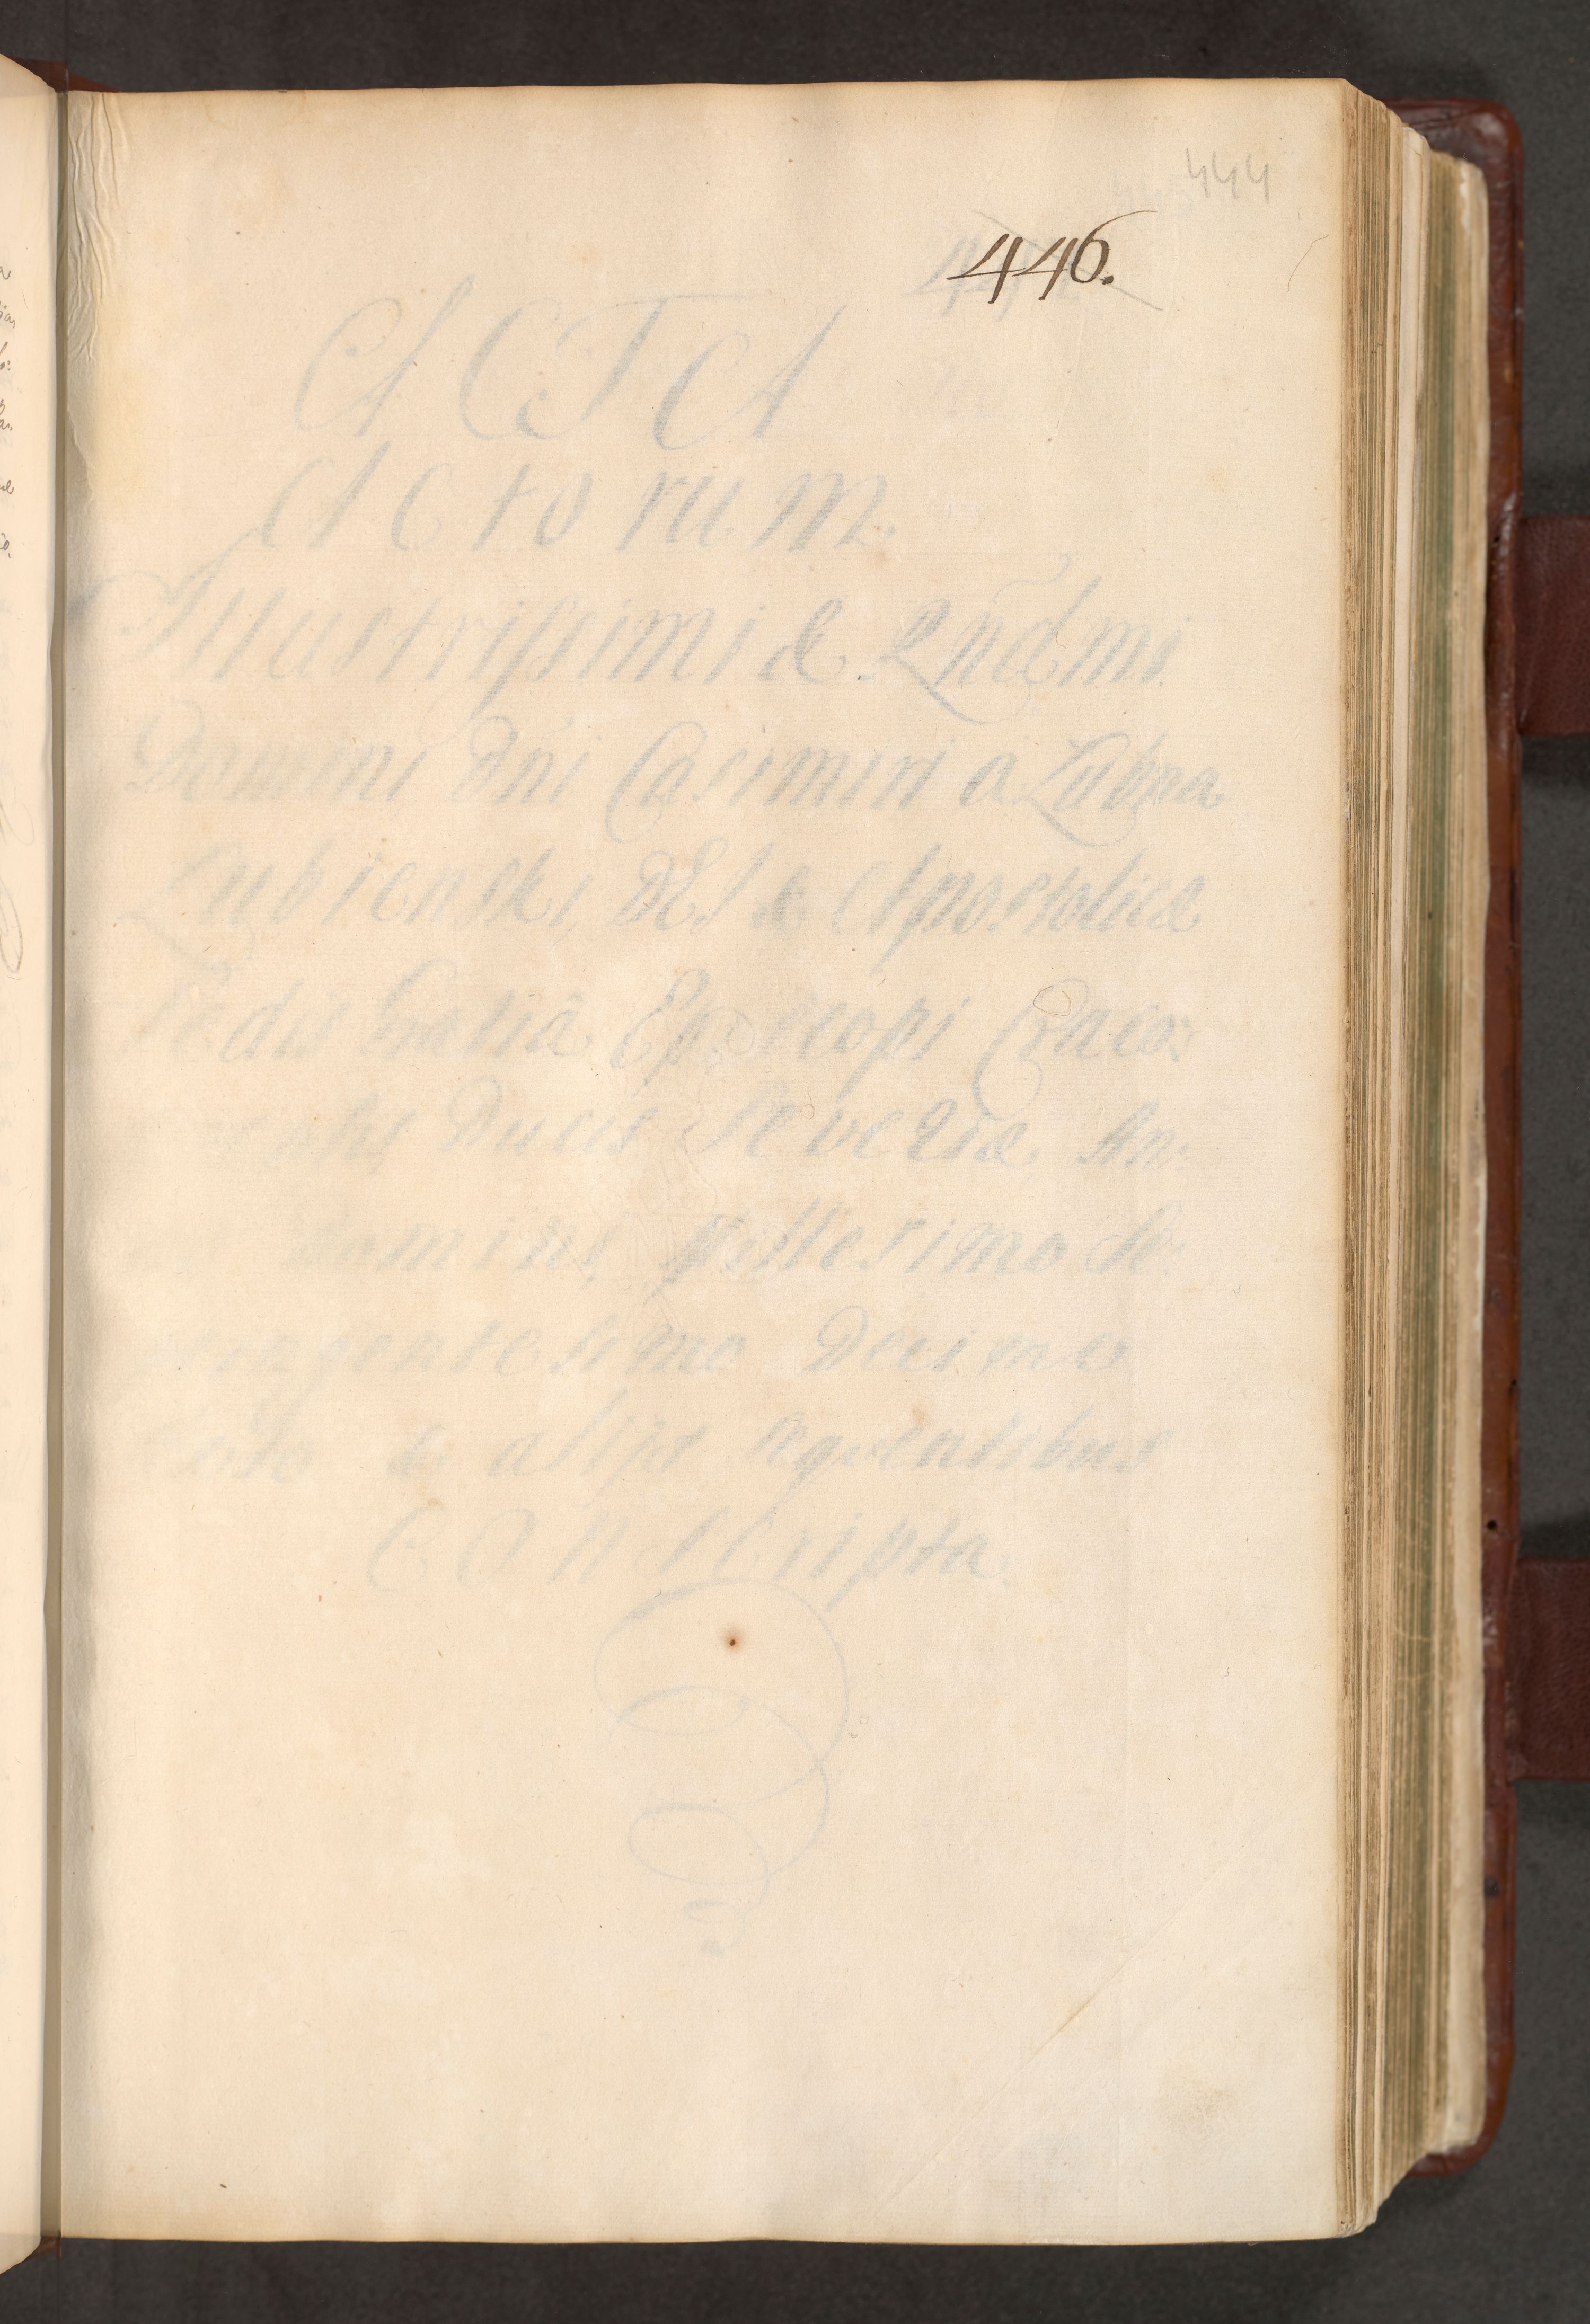 444
446.
ACTA
Actorum
Illustrissimi & Rñdmi
Domini Dñi Casimiri a Lubna
Lubienski, DEI & Apostolicæ
Sedis Gratiâ Episcopi Craco:
Ducis Severiæ, An:
Millesimo Se:
Decimo
& alijs sequentibus
Conscripta